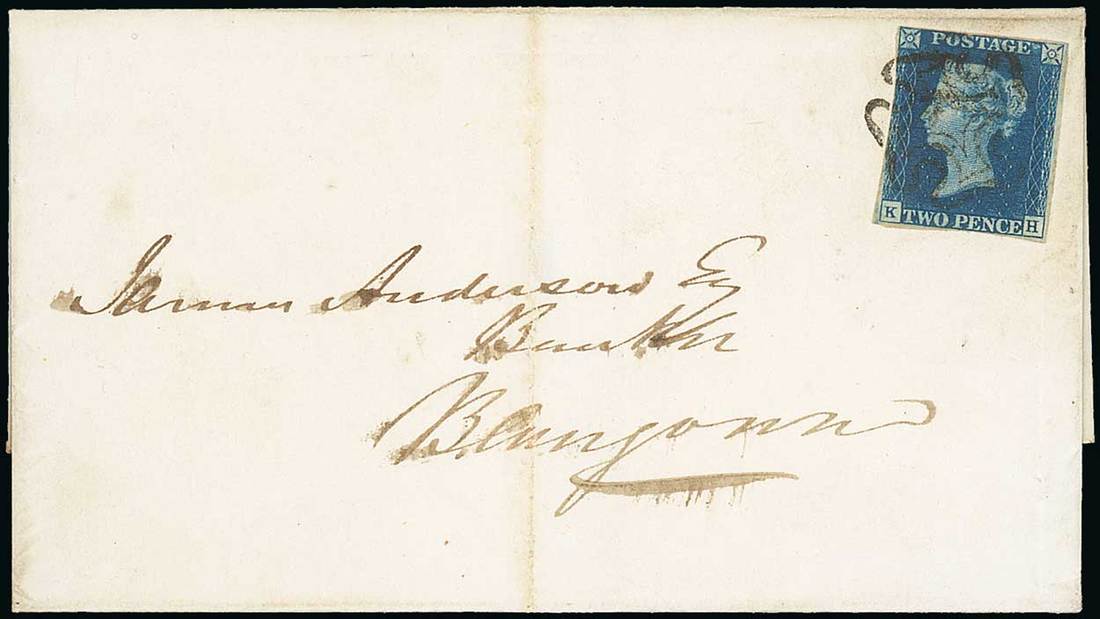 POSTAGE
TWO PENCE
K H
James Anderson Esq
Banker
Blairgowrie